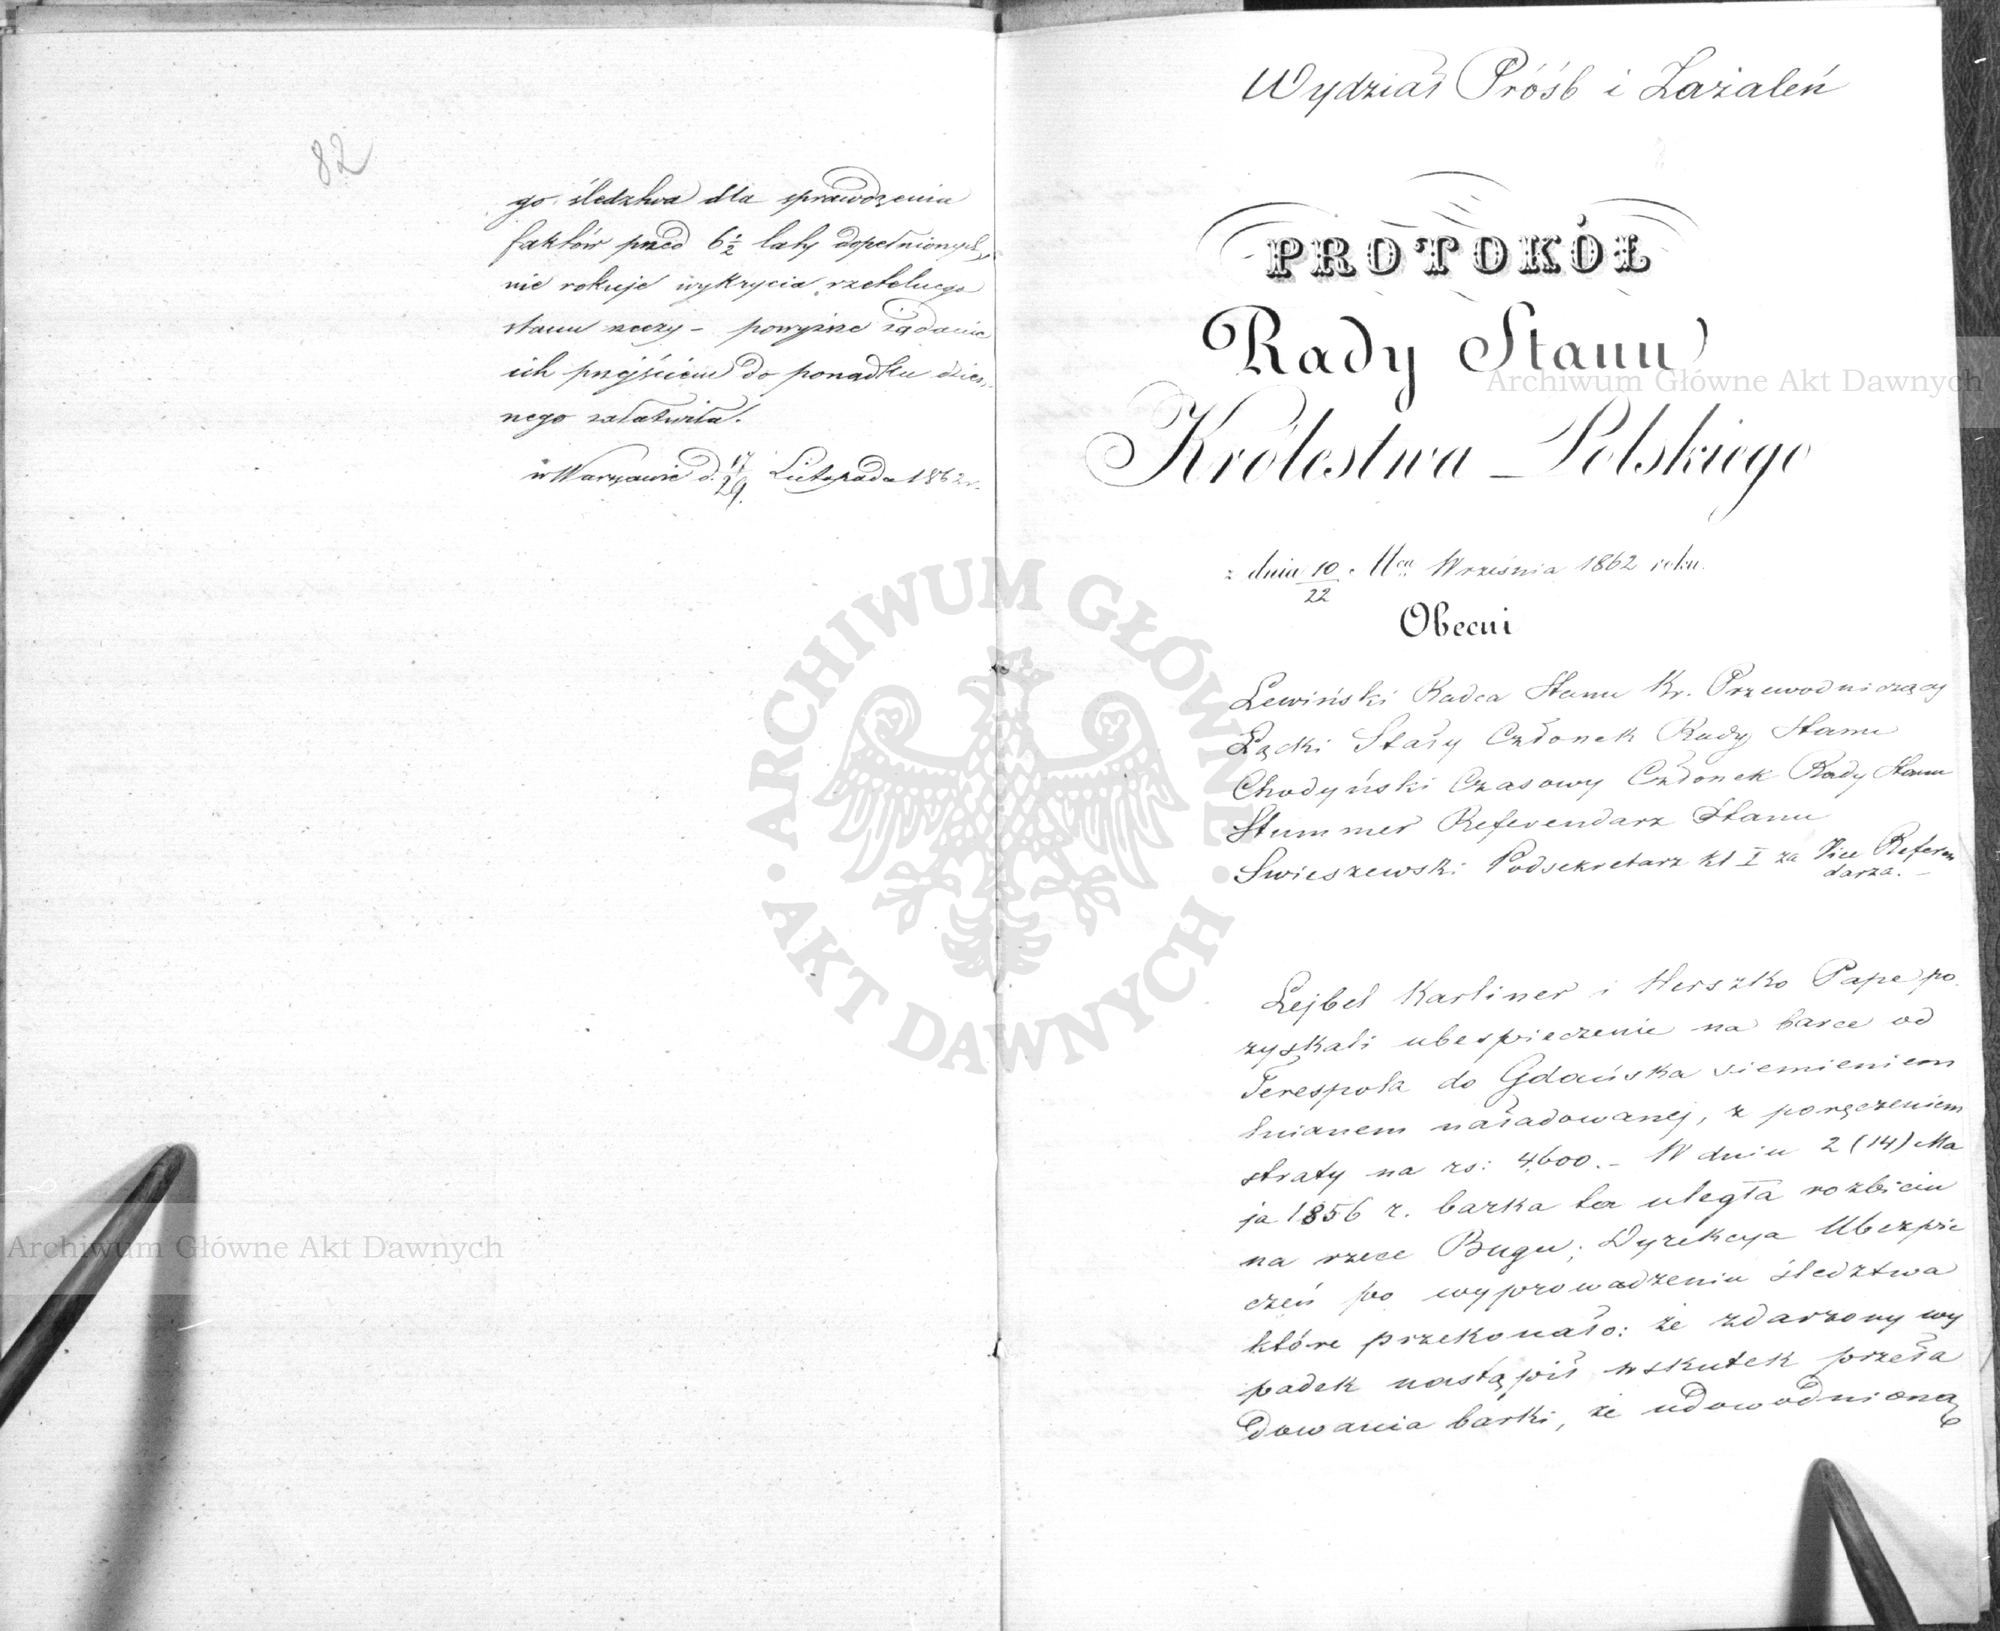 82
go śledztwa dla sprawdzenia
faktów przed 6½ laty dopełnionych,
nie rokuje wykrycia rzetelnego
stanu rzeczy – powyższe żądanie
ich przejściem do porządku dzien-
nego załatwiła.
w Warszawie d. 17/29 Listopada 1862 r.
Wydział Próśb i Zażaleń
PROTOKÓŁ
Rady Stanu
Królestwa Polskiego
z dnia 10/22 Mca Września 1862 roku.
Obecni
Lewiński Radca Stanu Kr. Przewodniczący
Łącki Stały Członek Rady Stanu
Chodyński Czasowy Członek Rady Stanu
Stummer Referendarz Stanu
Swieszewski Podsekretarz kl I za Vice Referen
darza. –
Lejbel Karliner i Herszko Pape po-
zyskali ubespieczenie na barce od
Terespola do Gdańska siemieniem
lnianem naładowanej, z poręczeniem
straty na rs: 4,600. – W dniu 2 (14) Ma
ja 1856 r. barka ta uległa rozbiciu
na rzece Bugu; Dyrekcya Ubezpie
czeń po wyprowadzeniu śledztwa
które przekonało: że zdarzony wy
padek nastąpił wskutek przeła
dowania barki, że udowodnioną
Archiwum Główne Akt Dawnych
Archiwum Główne Akt Dawnych
ARCHIWUM GŁÓWNE AKT DAWNYCH